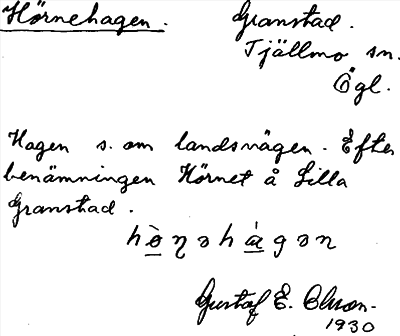 Hörnehagen. Granstad.
Tjällmo sn.
Ögl.
Hagen s. om landsvägen. Efter
benämningen Hörnet å Lilla
Granstad.
hò̲ṇəhà̲gən
Gustaf E. Olson.
1930